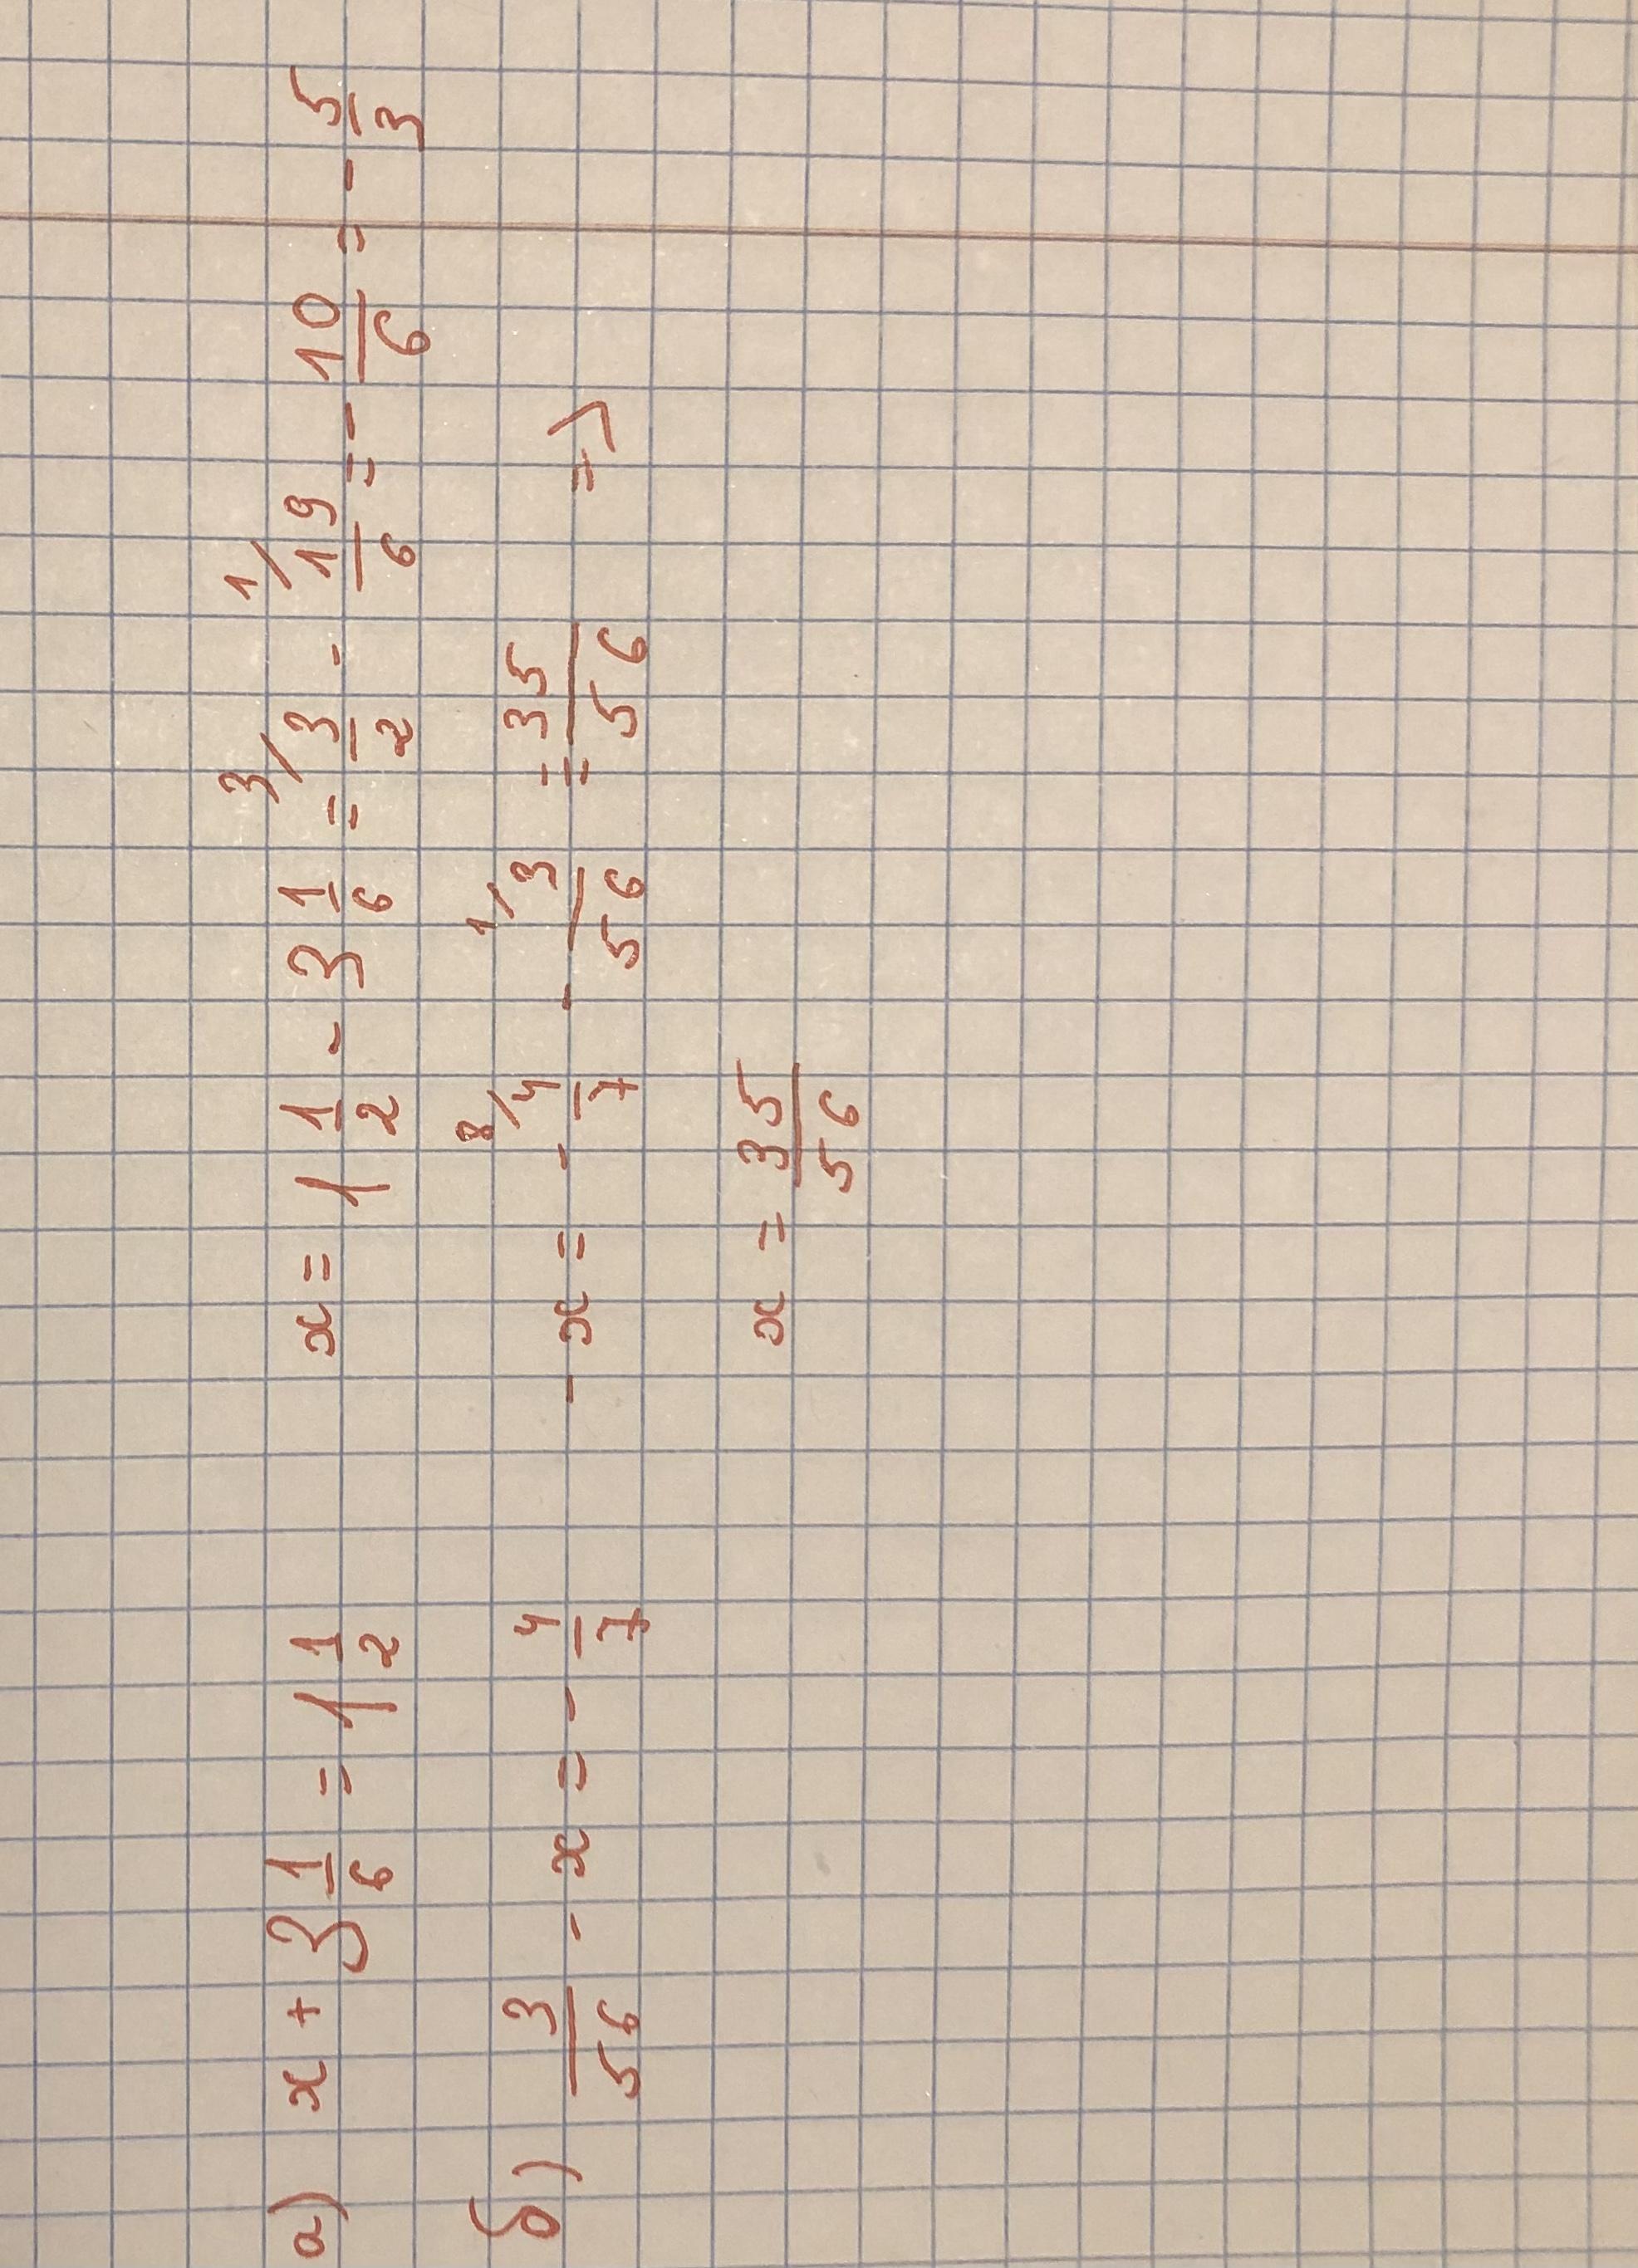 а) x + 3 1/6 = 1 1/2 x = 1 1/2 - 3 1/6 = 3/ 3/2 - 1/ 19/6 = - 10/6 = - 5/3
б) 3/56 - x = - 4/7 - x = - 8/ 4/7 - 1/ 3/56 = - 35/56 =>
x = 35/56